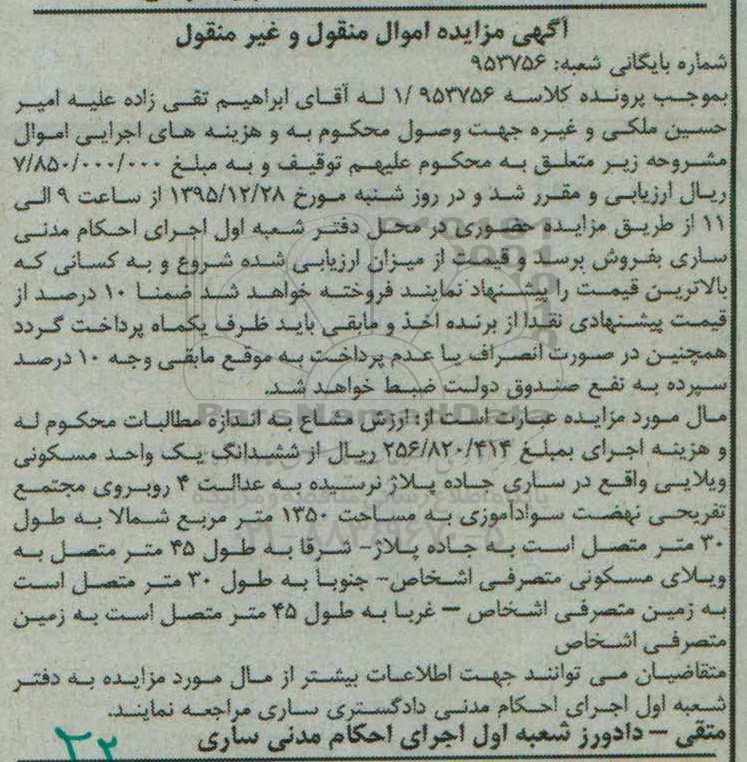 آگهی مزایده اموال منقول و غیر منقول
شماره بایگانی شعبه: ۹۵۳۷۵۶
بموجب پرونده کلاسه ۹۵۳۷۵۶ /۱ له آقای ابراهیم تقی زاده علیه امیر
حسین ملکی و غیره جهت وصول محکوم به و هزینه های اجرایی اموال
مشروحه زیر متعلق به محکوم علیهم توقیف و به مبلغ ۷/۸۵۰/۰۰۰/۰۰۰
ریال ارزیابی و مقرر شد و در روز شنبه مورخ ۱۳۹۵/۱۲/۲۸ از ساعت ۹ الی
۱۱ از طریق مزایده حضوری در محل دفتر شعبه اول اجرای احکام مدنی
ساری بفروش برسد و قیمت از میزان ارزیابی شده شروع و به کسانی که
بالاترین قیمت را پیشنهاد نمایند فروخته خواهد شد ضمنا ۱۰ درصد از
قیمت پیشنهادی نقدا از برنده اخذ و مابقی باید ظرف یکماه پرداخت گردد
همچنین در صورت انصراف یا عدم پرداخت به موقع مابقی وجه ۱۰ درصد
سپرده به نفع صندوق دولت ضبط خواهد شد.
ParsNamadData
مال مورد مزایده عبارت است از: ارزش مشاع به اندازه مطالبات محکوم له
و هزینه اجرای بمبلغ ۲۵۶/۸۲۰/۴۱۴ ریال از ششدانگ یک واحد مسکونی
ویلایی واقع در ساری جاده پلاژ نرسیده به عدالت ۴ روبروی مجتمع
تفریحی نهضت سوادآموزی به مساحت ۱۳۵۰ متر مربع شمالا به طول
۳۰ متر متصل است به جاده پلاژ- شرقا به طول ۴۵ متر متصل به
ویلای مسکونی متصرفی اشخاص- جنوبا به طول ۳۰ متر متصل است
به زمین متصرفی اشخاص – غربا به طول ۴۵ متر متصل است به زمین
متصرفی اشخاص
متقاضیان می توانند جهت اطلاعات بیشتر از مال مورد مزایده به دفتر
شعبه اول اجرای احکام مدنی دادگستری ساری مراجعه نمایند.
متقی – دادورز شعبه اول اجرای احکام مدنی ساری